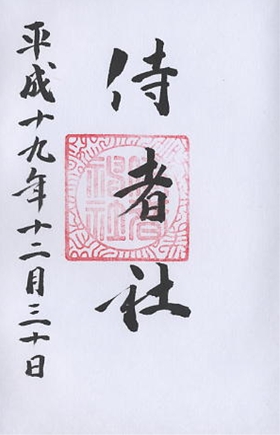 侍者社
平成十九年十二月三十日